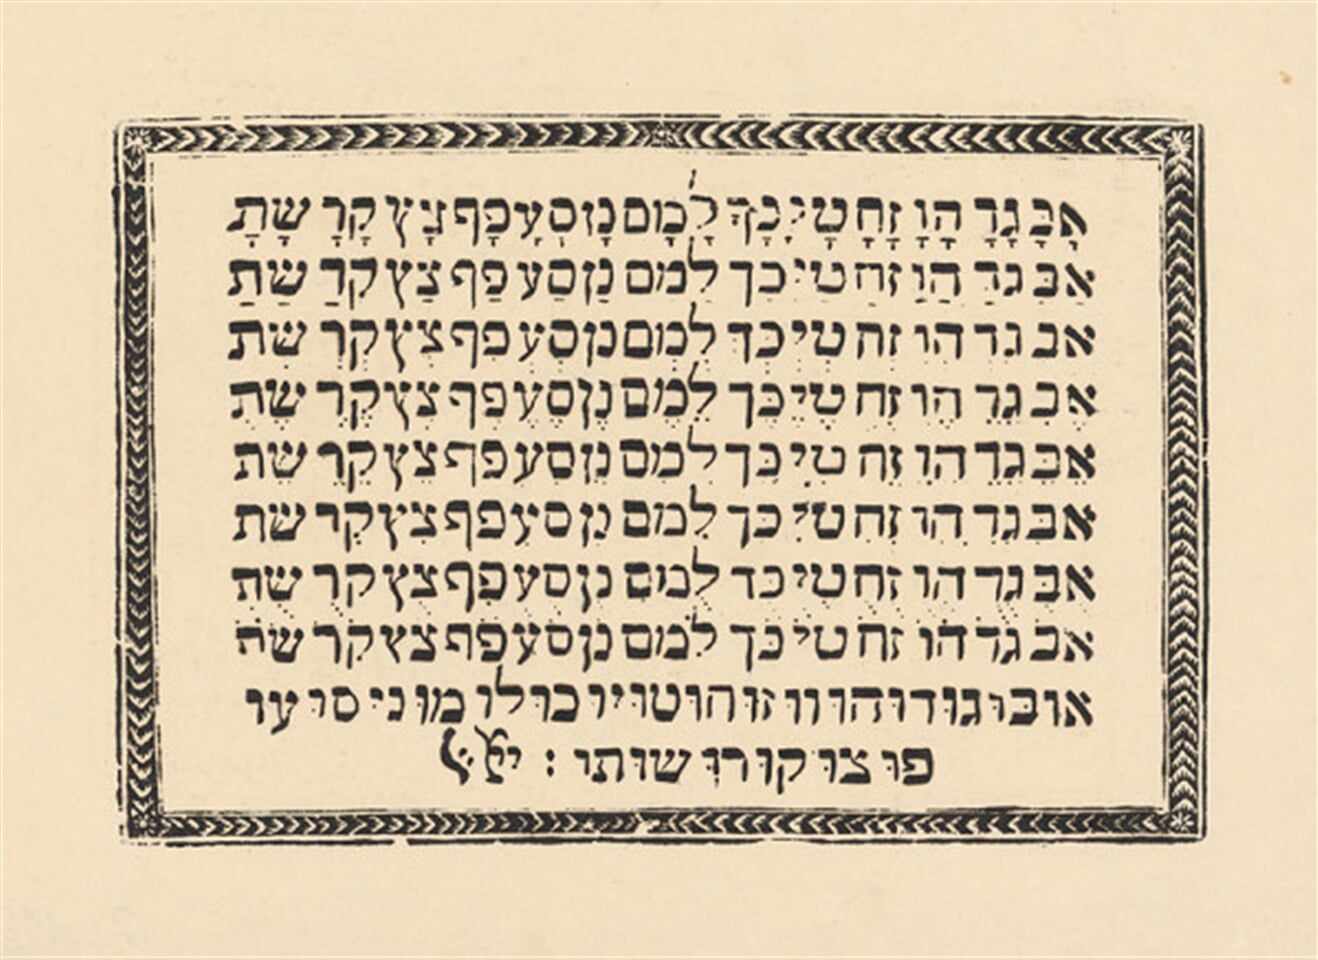 אב גד הו זח טי כך למם נן סע פף צץ קר שת
אב גד הו זח טי כך למם נן סע פף צץ קר שת
אב גד הו זח טי כך למם נן סע פף צץ קר שת
אב גד הו זח טי כך למם נן סע פף צץ קר שת
אב גד הו זח טי כך למם נן סע פף צץ קר שת
אב גד הו זח טי כך למם נן סע פף צץ קר שת
אב גד הו זח טי כך למם נן סע פף צץ קר שת
אב גד הו זח טי כך למם נן סע פף צץ קר שת
או בו גו דו הו וו זו הו טו יו כו לו מו נו סו עו
פו צו קו רו שו תו :